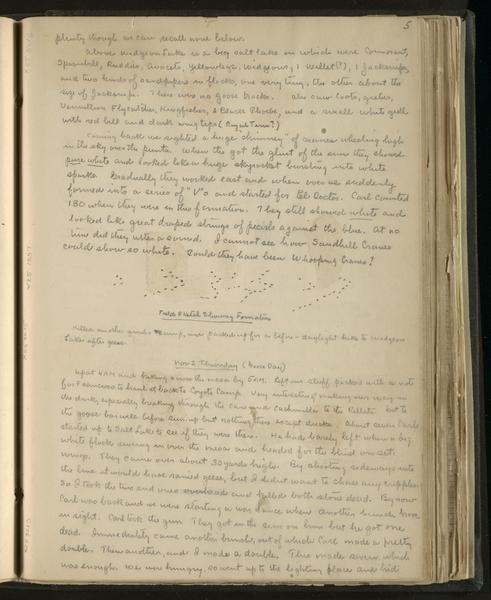 5
plenty though we can recall none below.
Above Widgeon Lake is a big salt lake in which were Cormorant,
Spoonbill, Ruddies, Avocets, Yellowlegs, Widgeons, 1 Willet(?), 1 Jacksnipe,
and two kinds of sandpipers in flocks, one very tiny, the other about the
size of Jacksnipe. There were no goose tracks. Also saw Coots, grebes,
Vermillion Flycatcher, Kingfisher, & Black Phoebe, and a small white gull
with red bill and dark wing tips (Royal Tern?)
Coming back we sighted a huge "chimney" of cranes wheeling high
in the sky over the punta. When the got the glint of the sun they showed
pure white and looked like a huge skyrocket bursting into white
sparks. Gradually they worked east and when over us suddenly
formed into a series of "V"s and started for El Doctor. Carl counted
180 when they were in this formation. They still showed white and
looked like great draped strings of pearls against the blue. At no
time did they utter a sound. I cannot see how Sandhill Cranes
could show so white. Could they have been Whooping Cranes?
Formation
Killed another and were packed up for a before-daylight hike to Widgeon
Lake after geese.
Nov 2 Thursday (Goose Day)
Up at 4 AM and hiking across the mesa by 5 AM. Left our stuff packed with a note
for Francisco to haul it back to Coyote Camp. Very interesting making our way in
the dark, especially breaking through the cane and cachinilla to the Rillito. Got to
the goose before sun-up but nothing there except ducks. About seven Carl
started up to Salt Lake to see if they were there. He had barely left when a big
white flock over the mesa and headed for the blind on set
wings. They came over about 30 yards high. By shooting sideways into
the line at would have rained geese, but I didn't want to chase any cripples
so I took the two end ones overhead and killed both stone dead. By now
Carl was back and we were starting a war dance when another bunch hove
in sight. Carl took the gun. They got on him but he got one
dead. Immediately came another bunch, out of which Carl made a pretty
double. Then another, and I made a double. This made seven which
was enough. We were hungry, so went up to the lighting place and hid